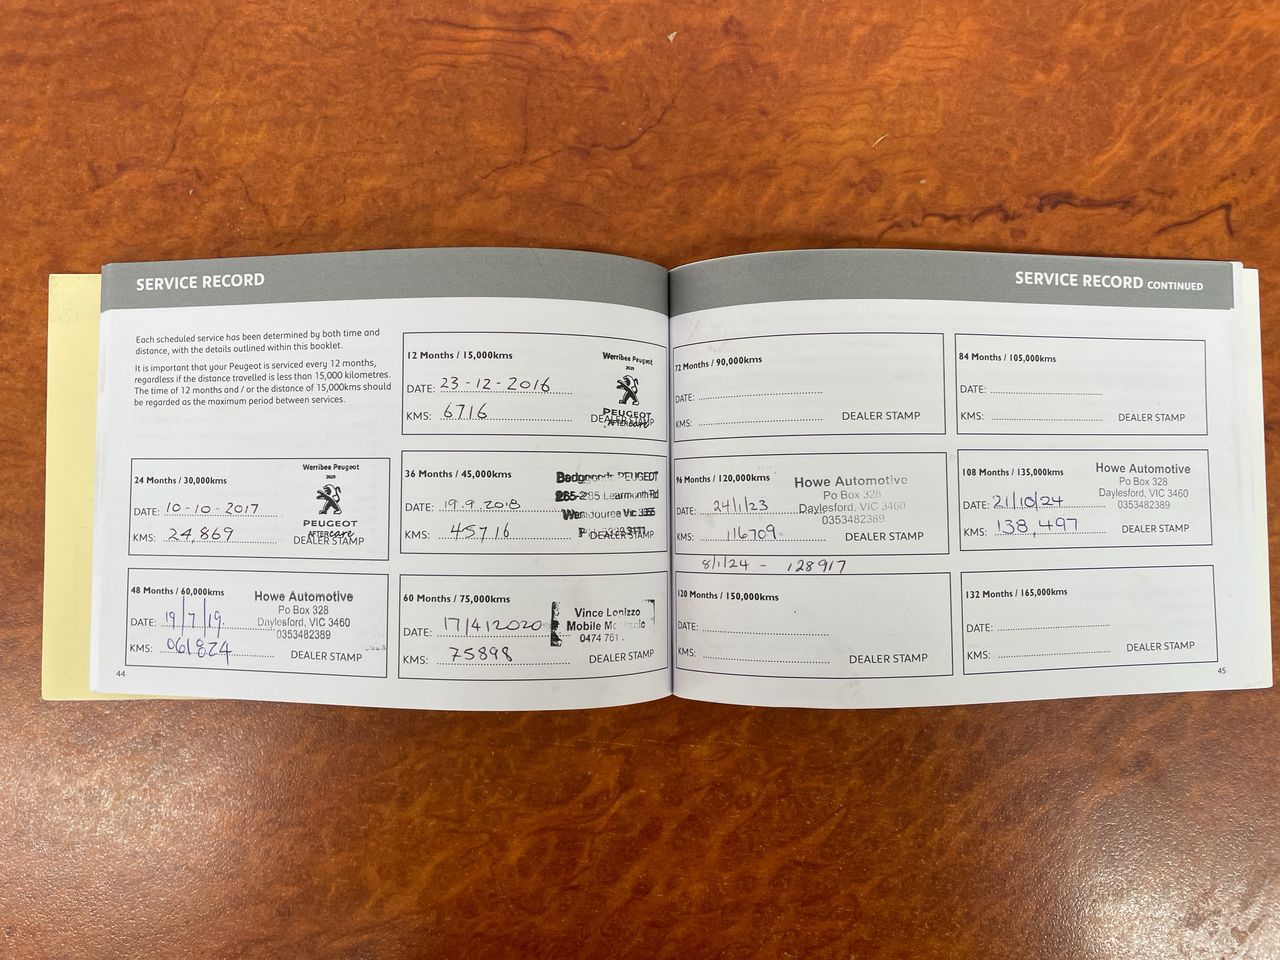 SERVICE RECORD
Each scheduled service has been determined by both time and
distance, with the details outlined within this booklet.
It is important that your Peugeot is serviced every 12 months,
regardless if the distance travelled is less than 15,000 kilometres.
The time of 12 months and / or the distance of 15,000kms should
be regarded as the maximum period between services.
12 Months / 15,000kms
Werribee Peugeot
2029
DATE: 23-12-2016
PEUGEOT
AFTERcare
KMS: 6716
DEALER STAMP
24 Months / 30,000kms
Werribee Peugeot
2029
DATE: 10-10-2017
PEUGEOT
AFTERcare
KMS: 24,869
DEALER STAMP
36 Months / 45,000kms
PEUGEOT
DATE: 19.9.2018
Learmonth Rd
KMS: 45716
DEALER STAMP
48 Months / 60,000kms
Howe Automotive
Po Box 328
Daylesford, VIC 3460
0353482389
DATE: 19/7/19.
KMS: 061824
DEALER STAMP
60 Months / 75,000kms
Vince
Mobile
0474 761
DATE: 17/4/2020
KMS: 75898
DEALER STAMP
44
SERVICE RECORD CONTINUED
72 Months / 90,000kms
DATE:
KMS:
DEALER STAMP
84 Months / 105,000kms
DATE:
KMS:
DEALER STAMP
96 Months / 120,000kms
Howe Automotive
Po Box 328
Daylesford, VIC 3460
0353482389
DATE: 24/1/23
KMS: 116709
DEALER STAMP
8/1/24 - 128917
108 Months / 135,000kms
Howe Automotive
Po Box 328
Daylesford, VIC 3460
0353482389
DATE: 21/10/24
KMS: 138,497
DEALER STAMP
120 Months / 150,000kms
DATE:
KMS:
DEALER STAMP
132 Months / 165,000kms
DATE:
KMS:
DEALER STAMP
45